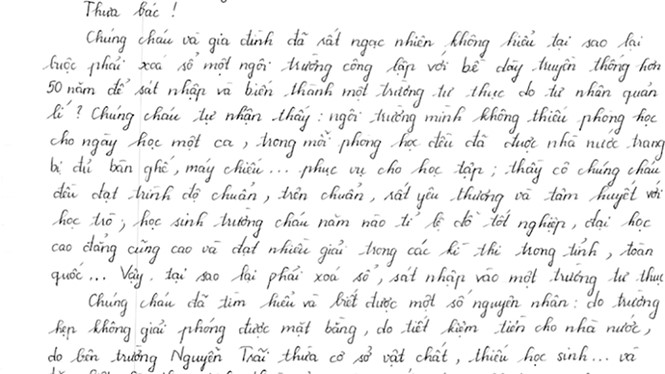 Thưa bác !
Chúng cháu và gia đình đã rất ngạc nhiên không hiểu tại sao lại
buộc phải xoá sổ một ngôi trường công lập với bề dày truyền thống hơn
50 năm để sát nhập và biến thành một trường tư thục do tư nhân quản
lí ? Chúng cháu tự nhận thấy : ngôi trường mình không thiếu phòng học
cho ngày học một ca , trong mỗi phòng học đều đã được nhà nước trang
bị đủ bàn ghế , máy chiếu ... phục vụ cho học tập ; thầy cô chúng cháu
đều đạt trình độ chuẩn , trên chuẩn , rất yêu thương và tâm huyết với
học trò ; học sinh trường cháu năm nào tỉ lệ đỗ tốt nghiệp , đại học
cao đẳng cũng cao và đạt nhiều giải trong các kì thi trong tỉnh , toàn
quốc ... Vậy tại sao lại phải xoá sổ , sát nhập vào một trường tư thục
Chúng cháu đã tìm hiểu và biết được một số nguyên nhân : do trường
hẹp không giải phóng được mặt bằng , do tiết kiệm tiền cho nhà nước ,
do bên trường Nguyễn Trãi thừa cơ sở vật chất , thiếu học sinh ... và